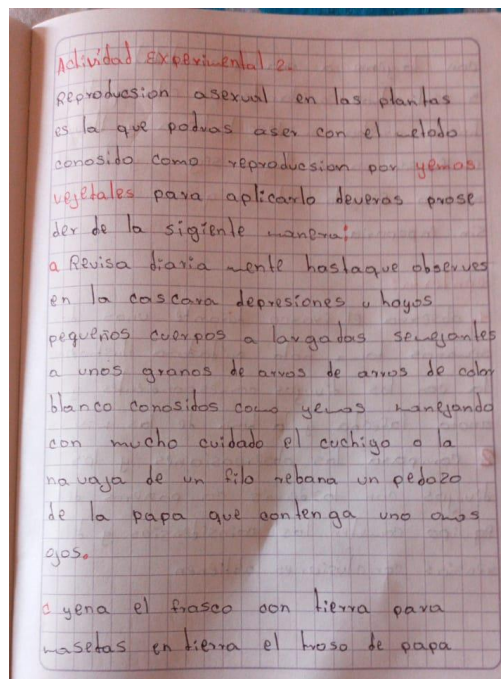 Actividad Experimental 2.
Reproducsion asexual en las plantas
es la que podras aser con el metodo
conosido como reproducsion por yemas
vejetales para aplicarlo deveras prose
der de la sigiente manera:
a Revisa diaria mente hastaque observes
en la cascara depresiones u hoyos
pequeños cuerpos a largadas semejantes
a unos granos de arros de arros de color
blanco conosidos como yemas manejando
con mucho cuidado el cuchigo o la
navaja de un filo rebana un pedazo
de la papa que contenga uno o mas
ojos.
c yena el frasco con tierra para
masetas en tierra el troso de papa